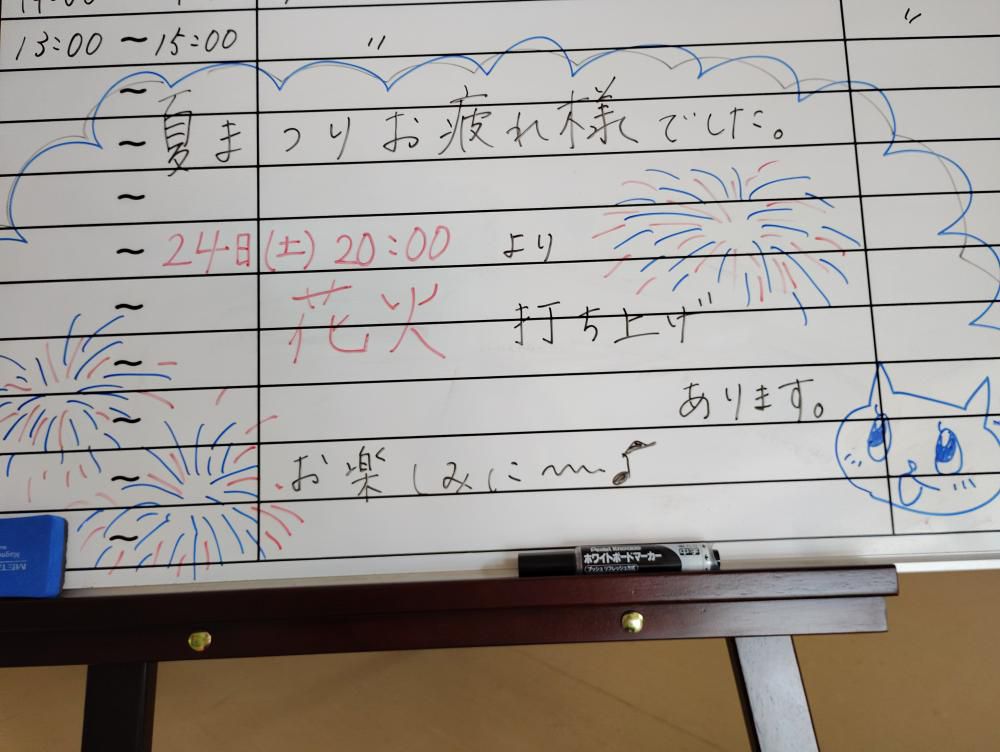 13:00 ~ 15:00 〃 〃
~
~ 夏まつりお疲れ様でした。
~
~ 24日(土) 20:00 より
~ 花火 打ち上げ
~
~ あります。
~ お楽しみに〜〜♪
~
Pentel
ホワイトボードマーカー